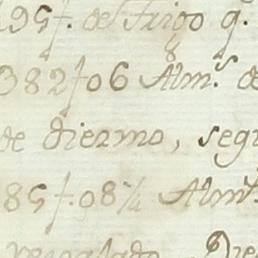 95f. de Trigo q.
382f06 Alm.s de
de diezmo, segu
85f.08¼ Alm.s